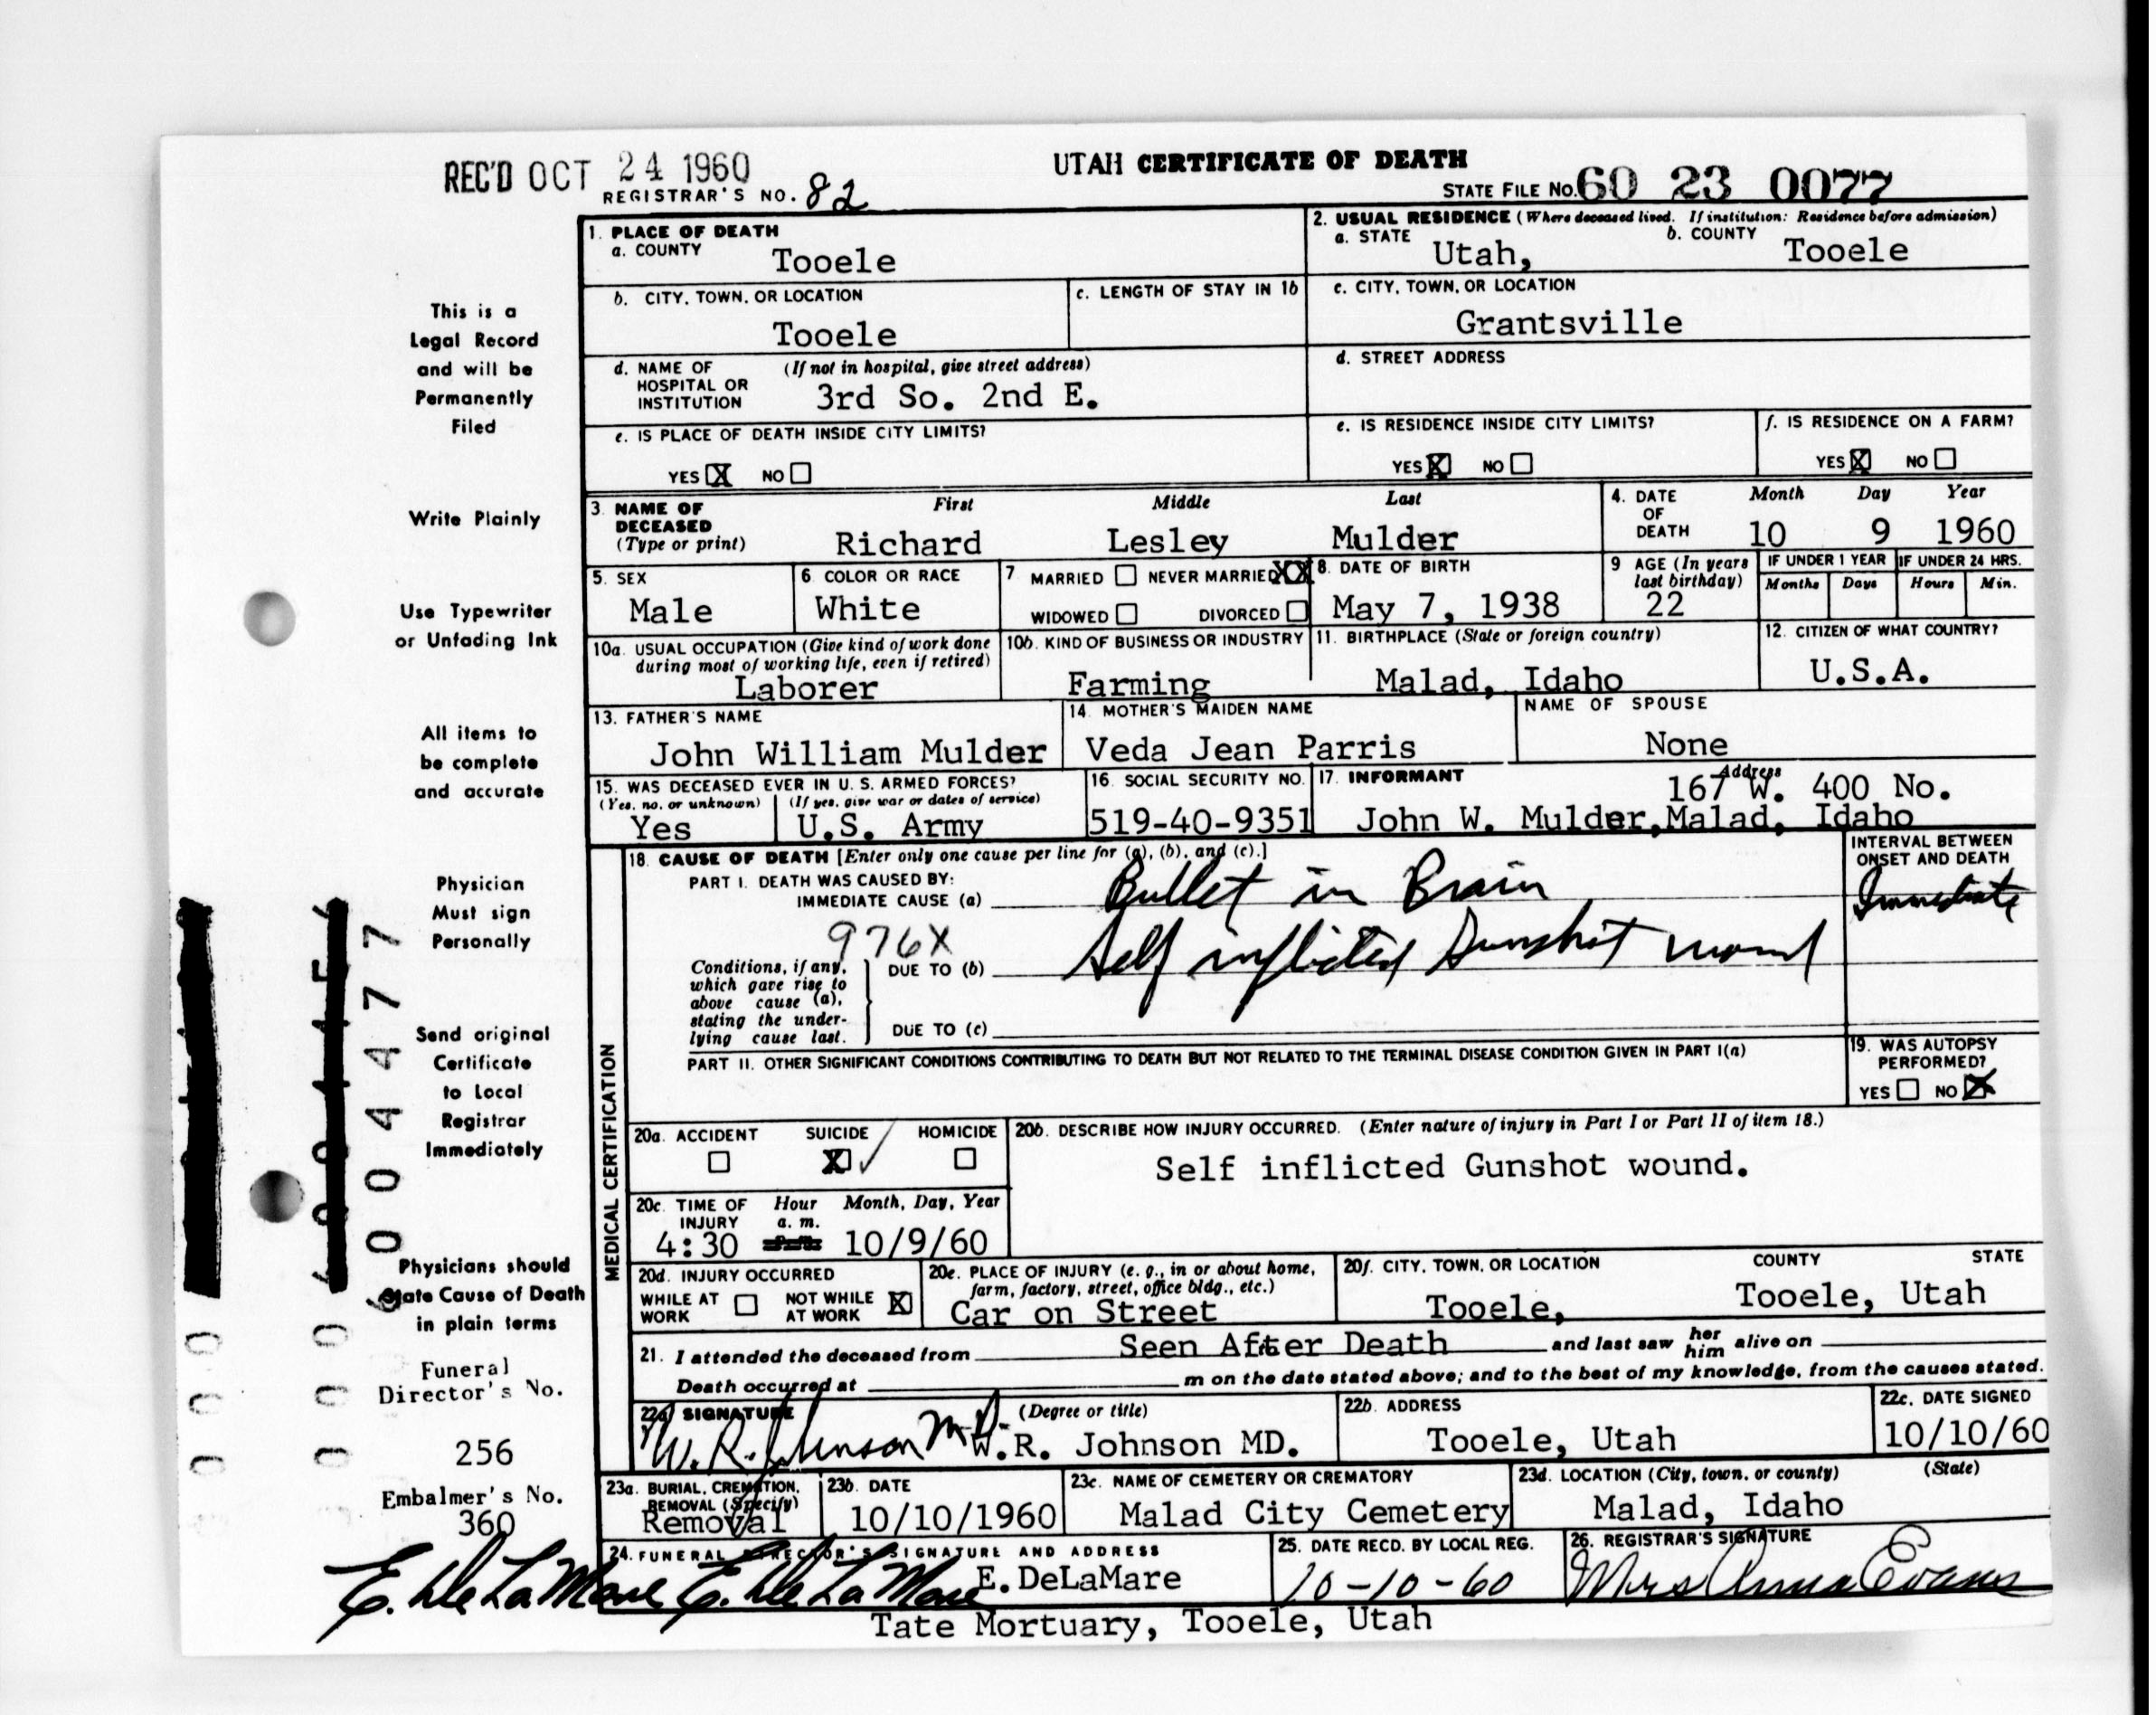 REC'D OCT 24 1960
UTAH CERTIFICATE OF DEATH
REGISTRAR'S NO. 82
STATE FILE NO. 60 23 0077
This is a
Legal Record
and will be
Permanently
Filed
Write Plainly
Use Typewriter
or Unfading Ink
All items to
be complete
and accurate
Physician
Must sign
Personally
Send original
Certificate
to Local
Registrar
Immediately
Physicians should
State Cause of Death
in plain terms
Funeral
Director's No.
256
Embalmer's No.
360
1. PLACE OF DEATH
a. COUNTY Tooele
2. USUAL RESIDENCE (Where deceased lived. If institution: Residence before admission)
a. STATE Utah, b. COUNTY Tooele
b. CITY, TOWN, OR LOCATION
Tooele
c. LENGTH OF STAY IN 1b
c. CITY, TOWN, OR LOCATION
Grantsville
d. NAME OF HOSPITAL OR INSTITUTION (If not in hospital, give street address)
3rd So. 2nd E.
d. STREET ADDRESS
e. IS PLACE OF DEATH INSIDE CITY LIMITS?
YES X NO
e. IS RESIDENCE INSIDE CITY LIMITS?
YES X NO
f. IS RESIDENCE ON A FARM?
YES X NO
3. NAME OF DECEASED (Type or print)
First Middle Last
Richard Lesley Mulder
4. DATE OF DEATH
Month Day Year
10 9 1960
5. SEX
Male
6. COLOR OR RACE
White
7 MARRIED NEVER MARRIED XX
WIDOWED DIVORCED
8. DATE OF BIRTH
May 7, 1938
9 AGE (In years last birthday)
22
IF UNDER 1 YEAR
Months Days
IF UNDER 24 HRS.
Hours Min.
10a. USUAL OCCUPATION (Give kind of work done during most of working life, even if retired)
Laborer
10b. KIND OF BUSINESS OR INDUSTRY
Farming
11. BIRTHPLACE (State or foreign country)
Malad, Idaho
12. CITIZEN OF WHAT COUNTRY?
U.S.A.
13. FATHER'S NAME
John William Mulder
14. MOTHER'S MAIDEN NAME
Veda Jean Parris
NAME OF SPOUSE
None
15. WAS DECEASED EVER IN U. S. ARMED FORCES?
(Yes, no, or unknown) (If yes, give war or dates of service)
Yes U.S. Army
16. SOCIAL SECURITY NO.
519-40-9351
17. INFORMANT Address
167 W. 400 No.
John W. Mulder, Malad, Idaho
MEDICAL CERTIFICATION
18. CAUSE OF DEATH [Enter only one cause per line for (a), (b), and (c).]
PART I. DEATH WAS CAUSED BY:
IMMEDIATE CAUSE (a) Bullet in Brain
INTERVAL BETWEEN
ONSET AND DEATH
Immediate
976X
Conditions, if any,
which gave rise to
above cause (a),
stating the under-
lying cause last.
DUE TO (b) Self inflicted Gunshot wound
DUE TO (c)
PART II. OTHER SIGNIFICANT CONDITIONS CONTRIBUTING TO DEATH BUT NOT RELATED TO THE TERMINAL DISEASE CONDITION GIVEN IN PART I(a)
19. WAS AUTOPSY
PERFORMED?
YES NO X
20a. ACCIDENT SUICIDE HOMICIDE
X ✓
20b. DESCRIBE HOW INJURY OCCURRED. (Enter nature of injury in Part I or Part II of item 18.)
Self inflicted Gunshot wound.
20c. TIME OF INJURY Hour a. m. Month, Day, Year
4:30 10/9/60
20d. INJURY OCCURRED
WHILE AT WORK NOT WHILE AT WORK X
20e. PLACE OF INJURY (e. g., in or about home, farm, factory, street, office bldg., etc.)
Car on Street
20f. CITY, TOWN, OR LOCATION COUNTY STATE
Tooele, Tooele, Utah
21. I attended the deceased from Seen After Death and last saw her him alive on
Death occurred at m on the date stated above; and to the best of my knowledge, from the causes stated.
22a SIGNATURE (Degree or title)
W. R. Johnson M.D. W.R. Johnson MD.
22b. ADDRESS
Tooele, Utah
22c. DATE SIGNED
10/10/60
23a. BURIAL, CREMATION, REMOVAL (Specify)
Removal
23b. DATE
10/10/1960
23c. NAME OF CEMETERY OR CREMATORY
Malad City Cemetery
23d. LOCATION (City, town, or county) (State)
Malad, Idaho
24. FUNERAL DIRECTOR'S SIGNATURE AND ADDRESS
E. DeLaMare E. DeLaMare E. DeLaMare
Tate Mortuary, Tooele, Utah
25. DATE RECD. BY LOCAL REG.
10-10-60
26. REGISTRAR'S SIGNATURE
Mrs Anna Evans
6004477